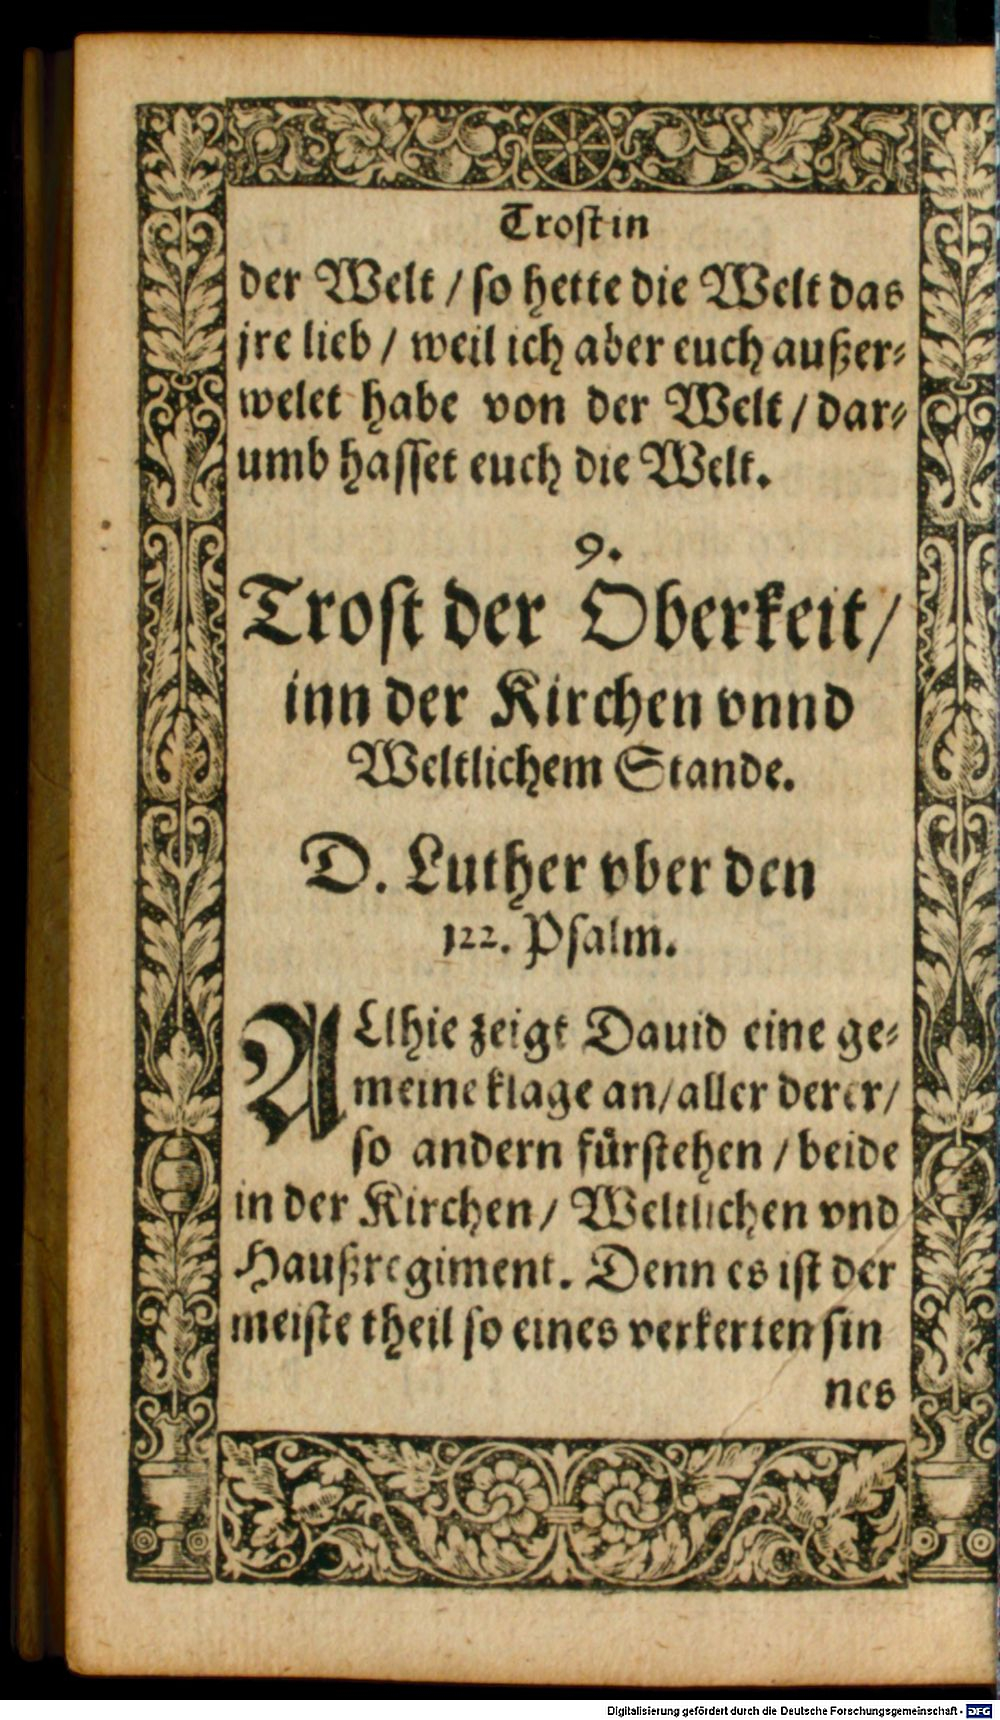 Trost in
der Welt / so hette die Welt das
jre lieb / weil ich aber euch außer-
welet habe von der Welt / dar-
umb hasset euch die Welt.
9.
Trost der Oberkeit /
inn der Kirchen vnnd
Weltlichem Stande.
D. Luther vber den
122. Psalm.
ALlhie zeigt Dauid eine ge-
meine klage an / aller derer /
so andern fürstehen / beide
in der Kirchen / Weltlichen vnd
Haußregiment. Denn es ist der
meiste theil so eines verkerten sin
nes
Digitalisierung gefördert durch die Deutsche Forschungsgemeinschaft - DFG